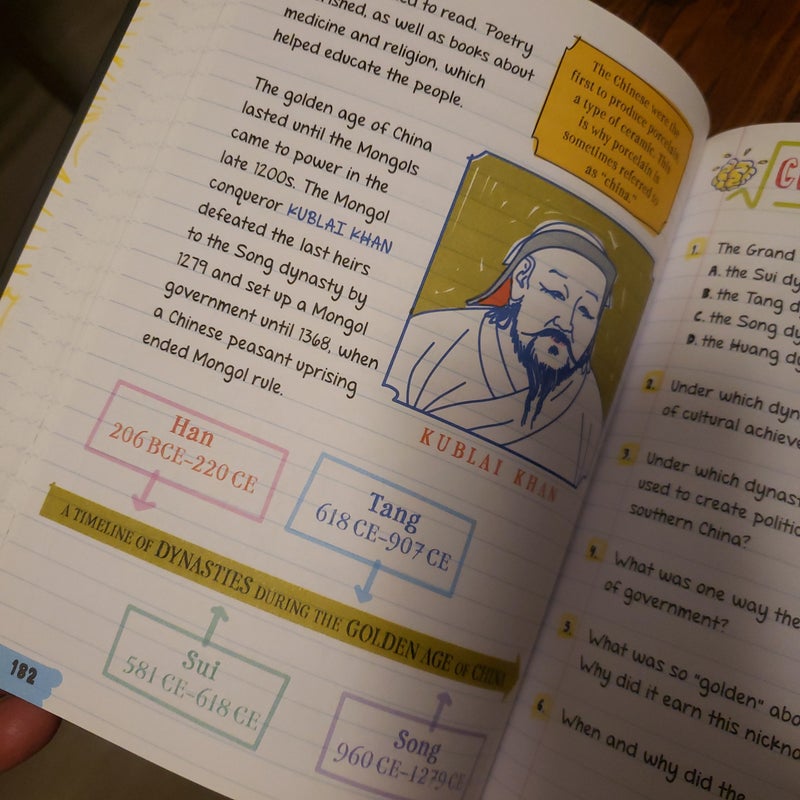 to read. Poetry
as well as books about
medicine and religion, which
helped educate the people.
The golden age of China
lasted until the Mongols
came to power in the
late 1200s. The Mongol
conqueror KUBLAI KHAN
defeated the last heirs
to the Song dynasty by
1279 and set up a Mongol
government until 1368, when
a Chinese peasant uprising
ended Mongol rule.
The Chinese were the
first to produce porcelain,
a type of ceramic. This
is why porcelain is
sometimes referred to
as "china."
KUBLAI KHAN
Han
206 BCE–220 CE
Tang
618 CE–907 CE
A TIMELINE OF DYNASTIES DURING THE GOLDEN AGE OF CHINA
Sui
581 CE–618 CE
Song
960 CE–1279 CE
182
1. The Grand
A. the Sui dy
B. the Tang d
C. the Song dy
D. the Huang dy
2. Under which dyn
of cultural achieve
3. Under which dynast
used to create politic
southern China?
4. What was one way the
of government?
5. What was so "golden" abo
Why did it earn this nickna
6. When and why did the